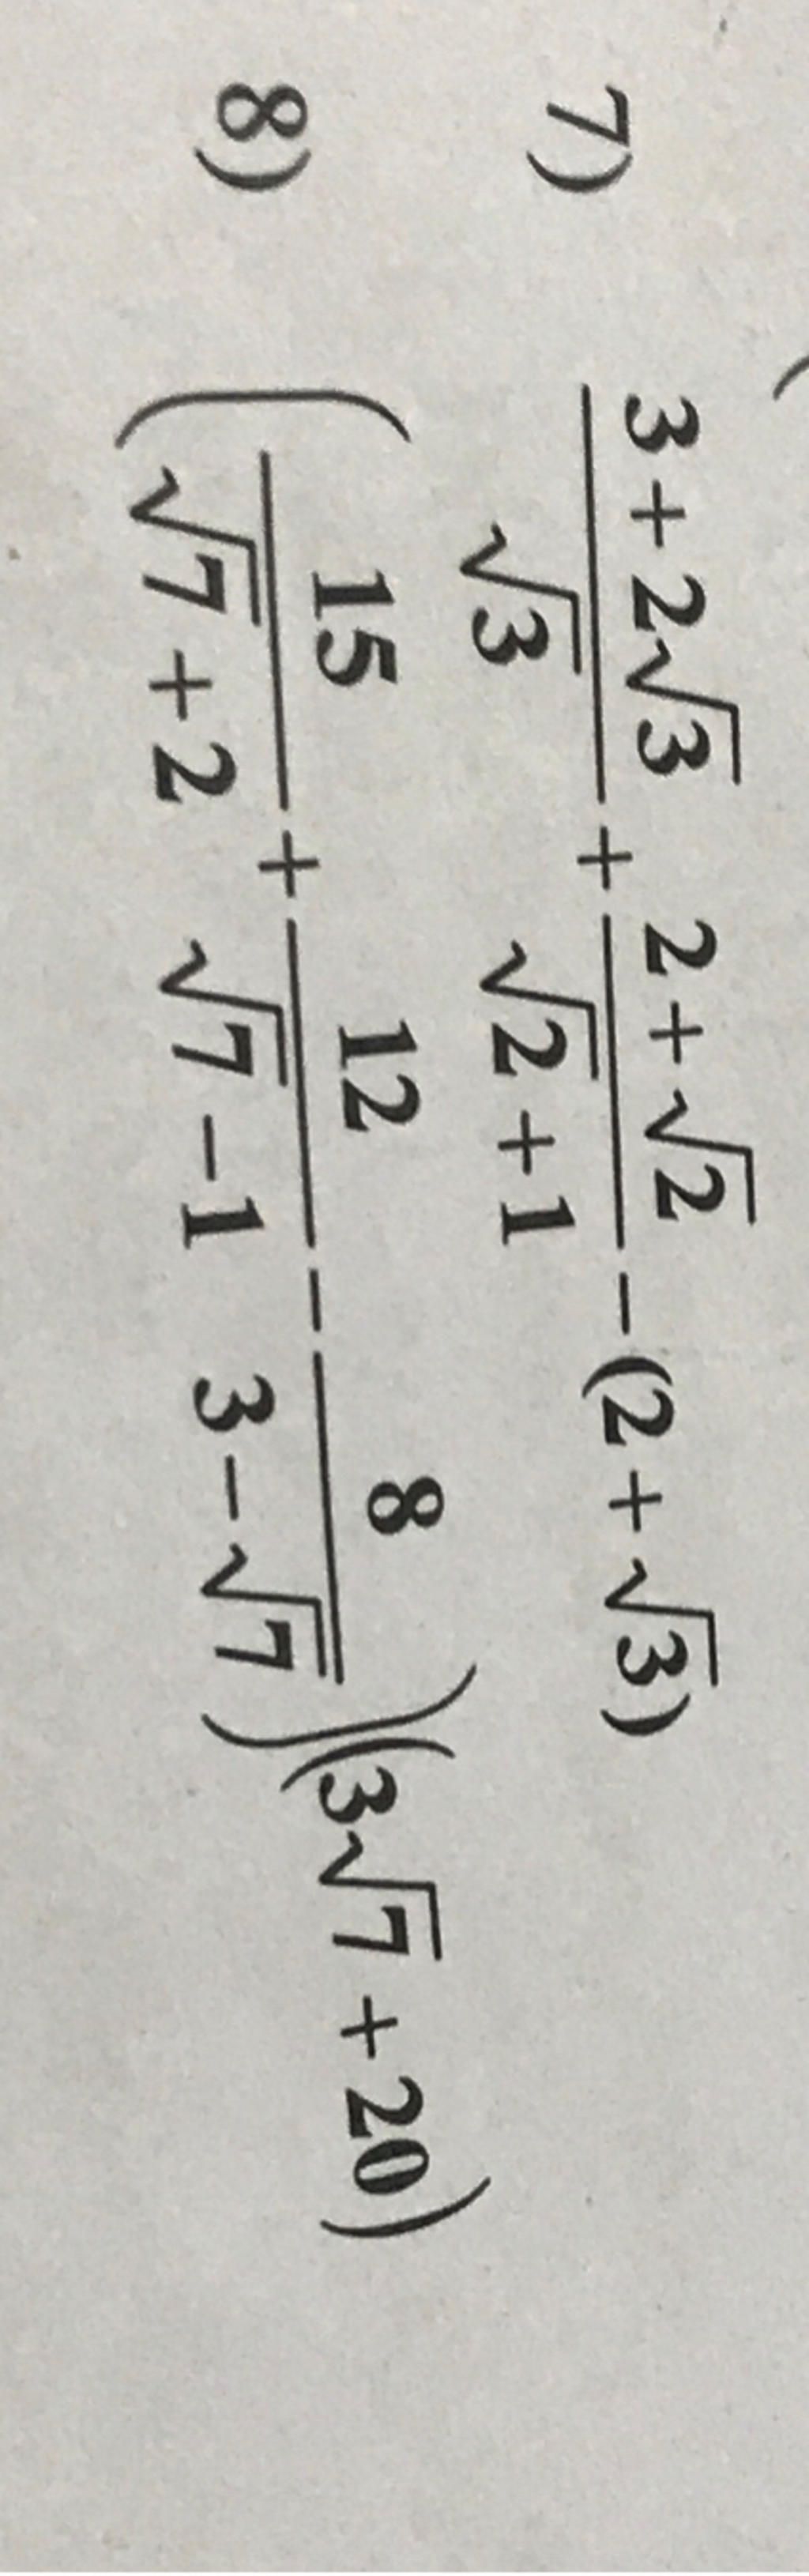 7) \frac{3+2\sqrt{3}}{\sqrt{3}} + \frac{2+\sqrt{2}}{\sqrt{2}+1} - (2+\sqrt{3})
8) \left(\frac{15}{\sqrt{7}+2} + \frac{12}{\sqrt{7}-1} - \frac{8}{3-\sqrt{7}}\right)(3\sqrt{7}+20)